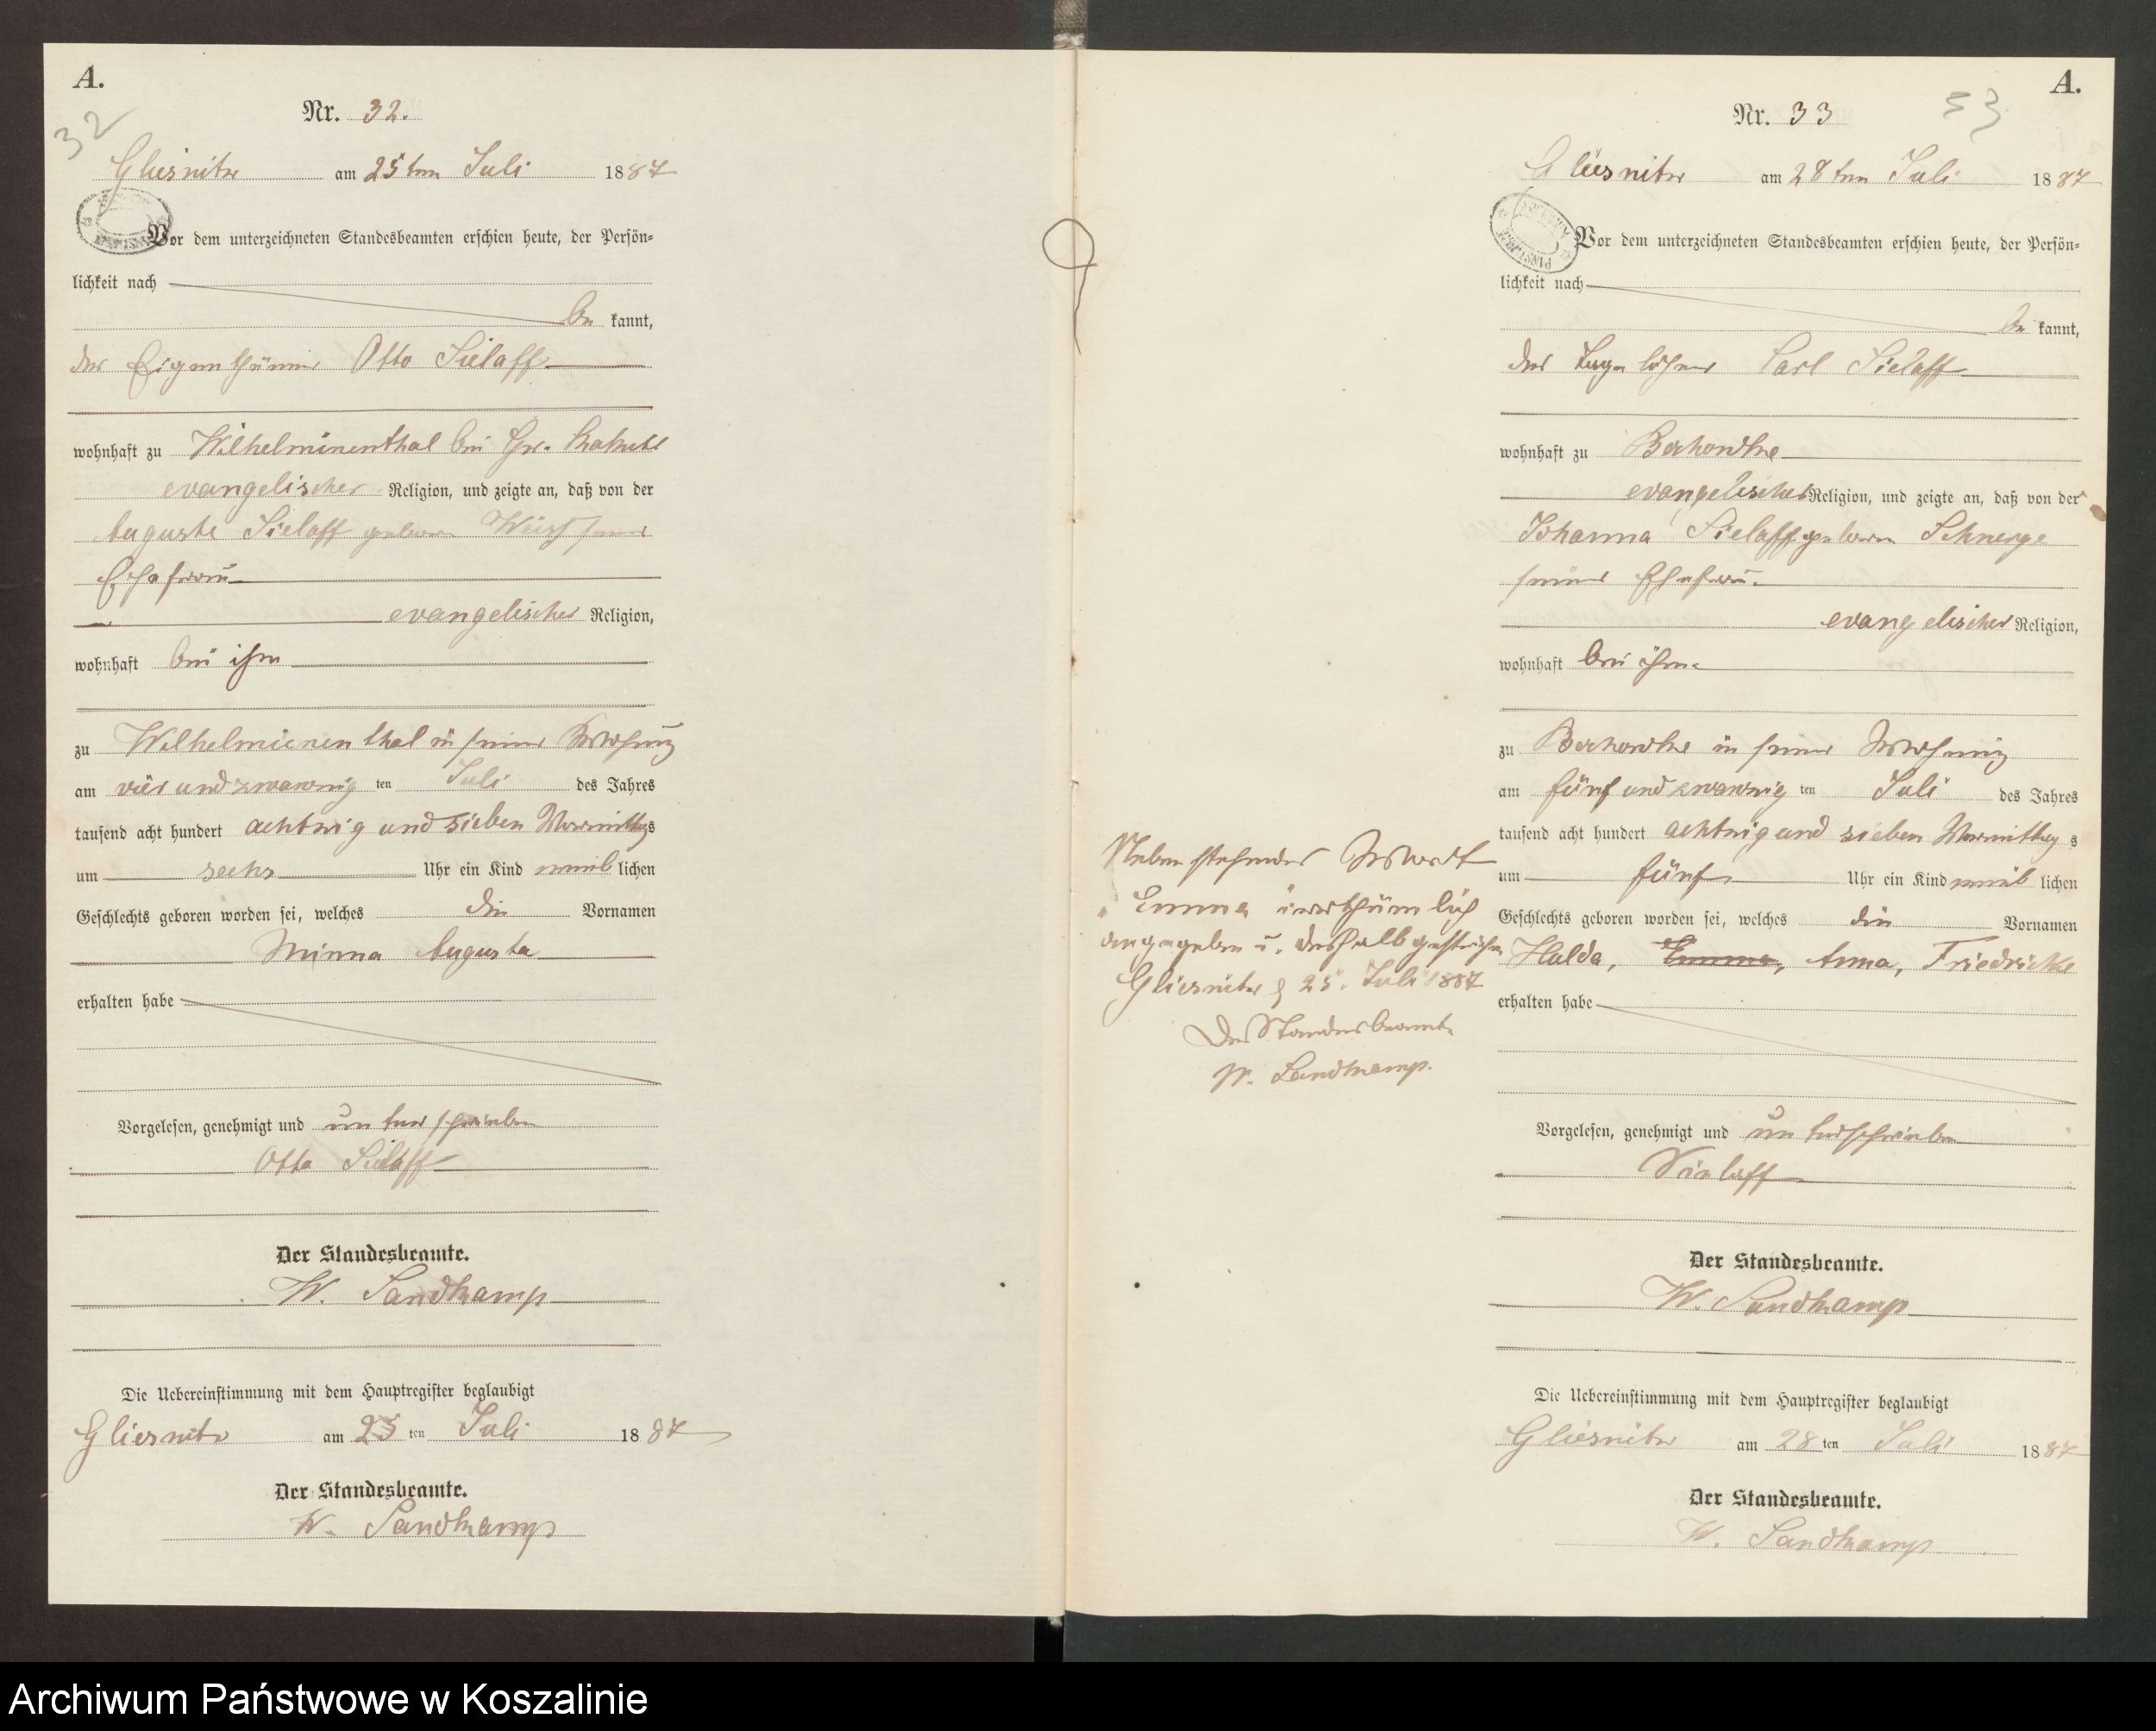 A.
32
Nr. 32.
Gliesnitz am 25ten Juli 1887
Vor dem unterzeichneten Standesbeamten erschien heute, der Persön-
lichkeit nach
be kannt,
der Eigenthümer Otto Sielaff
wohnhaft zu Wilhelminenthal bei Gr.
evangelischer Religion, und zeigte an, daß von der
Auguste Sielaff geboren seiner
Ehefrau
evangelischer Religion,
wohnhaft bei ihm
zu Wilhelminenthal in seiner Wohnung
am vier und zwanzig ten Juli des Jahres
tausend acht hundert achtzig und sieben Vormittags
um sechs Uhr ein Kind weib lichen
Geschlechts geboren worden sei, welches die Vornamen
Minna Augusta
erhalten habe
Vorgelesen, genehmigt und unterschrieben
Otto Sielaff
Der Standesbeamte.
W. Sandkamp
Die Uebereinstimmung mit dem Hauptregister beglaubigt
Gliesnitz am 25 ten Juli 1887
Der Standesbeamte.
W. Sandkamp
A.
33
Nr. 33
Gliesnitz am 28ten Juli 1887
Vor dem unterzeichneten Standesbeamten erschien heute, der Persön-
lichkeit nach
be kannt,
der Tagelöhner Carl Sielaff
wohnhaft zu
evangelischer Religion, und zeigte an, daß von der
Johanna Sielaff geboren
seiner Ehefrau.
evangelischer Religion,
wohnhaft bei ihm
zu in seiner Wohnung
am fünf und zwanzig ten Juli des Jahres
tausend acht hundert achtzig und sieben Vormittag s
um fünf Uhr ein Kind weib lichen
Geschlechts geboren worden sei, welches die Vornamen
Hulda, Emma, Anna, Friedricke
erhalten habe
Vorgelesen, genehmigt und unterschrieben
Sielaff
Der Standesbeamte.
W. Sandkamp
Die Uebereinstimmung mit dem Hauptregister beglaubigt
Gliesnitz am 28 ten Juli 1887
Der Standesbeamte.
W. Sandkamp
Nebenstehendes
Emma irrthümlich
angegeben u. deshalb gestrichen
Gliesnitz d 25. Juli 1887
Der Standesbeamte
W. Sandkamp.
Archiwum Państwowe w Koszalinie